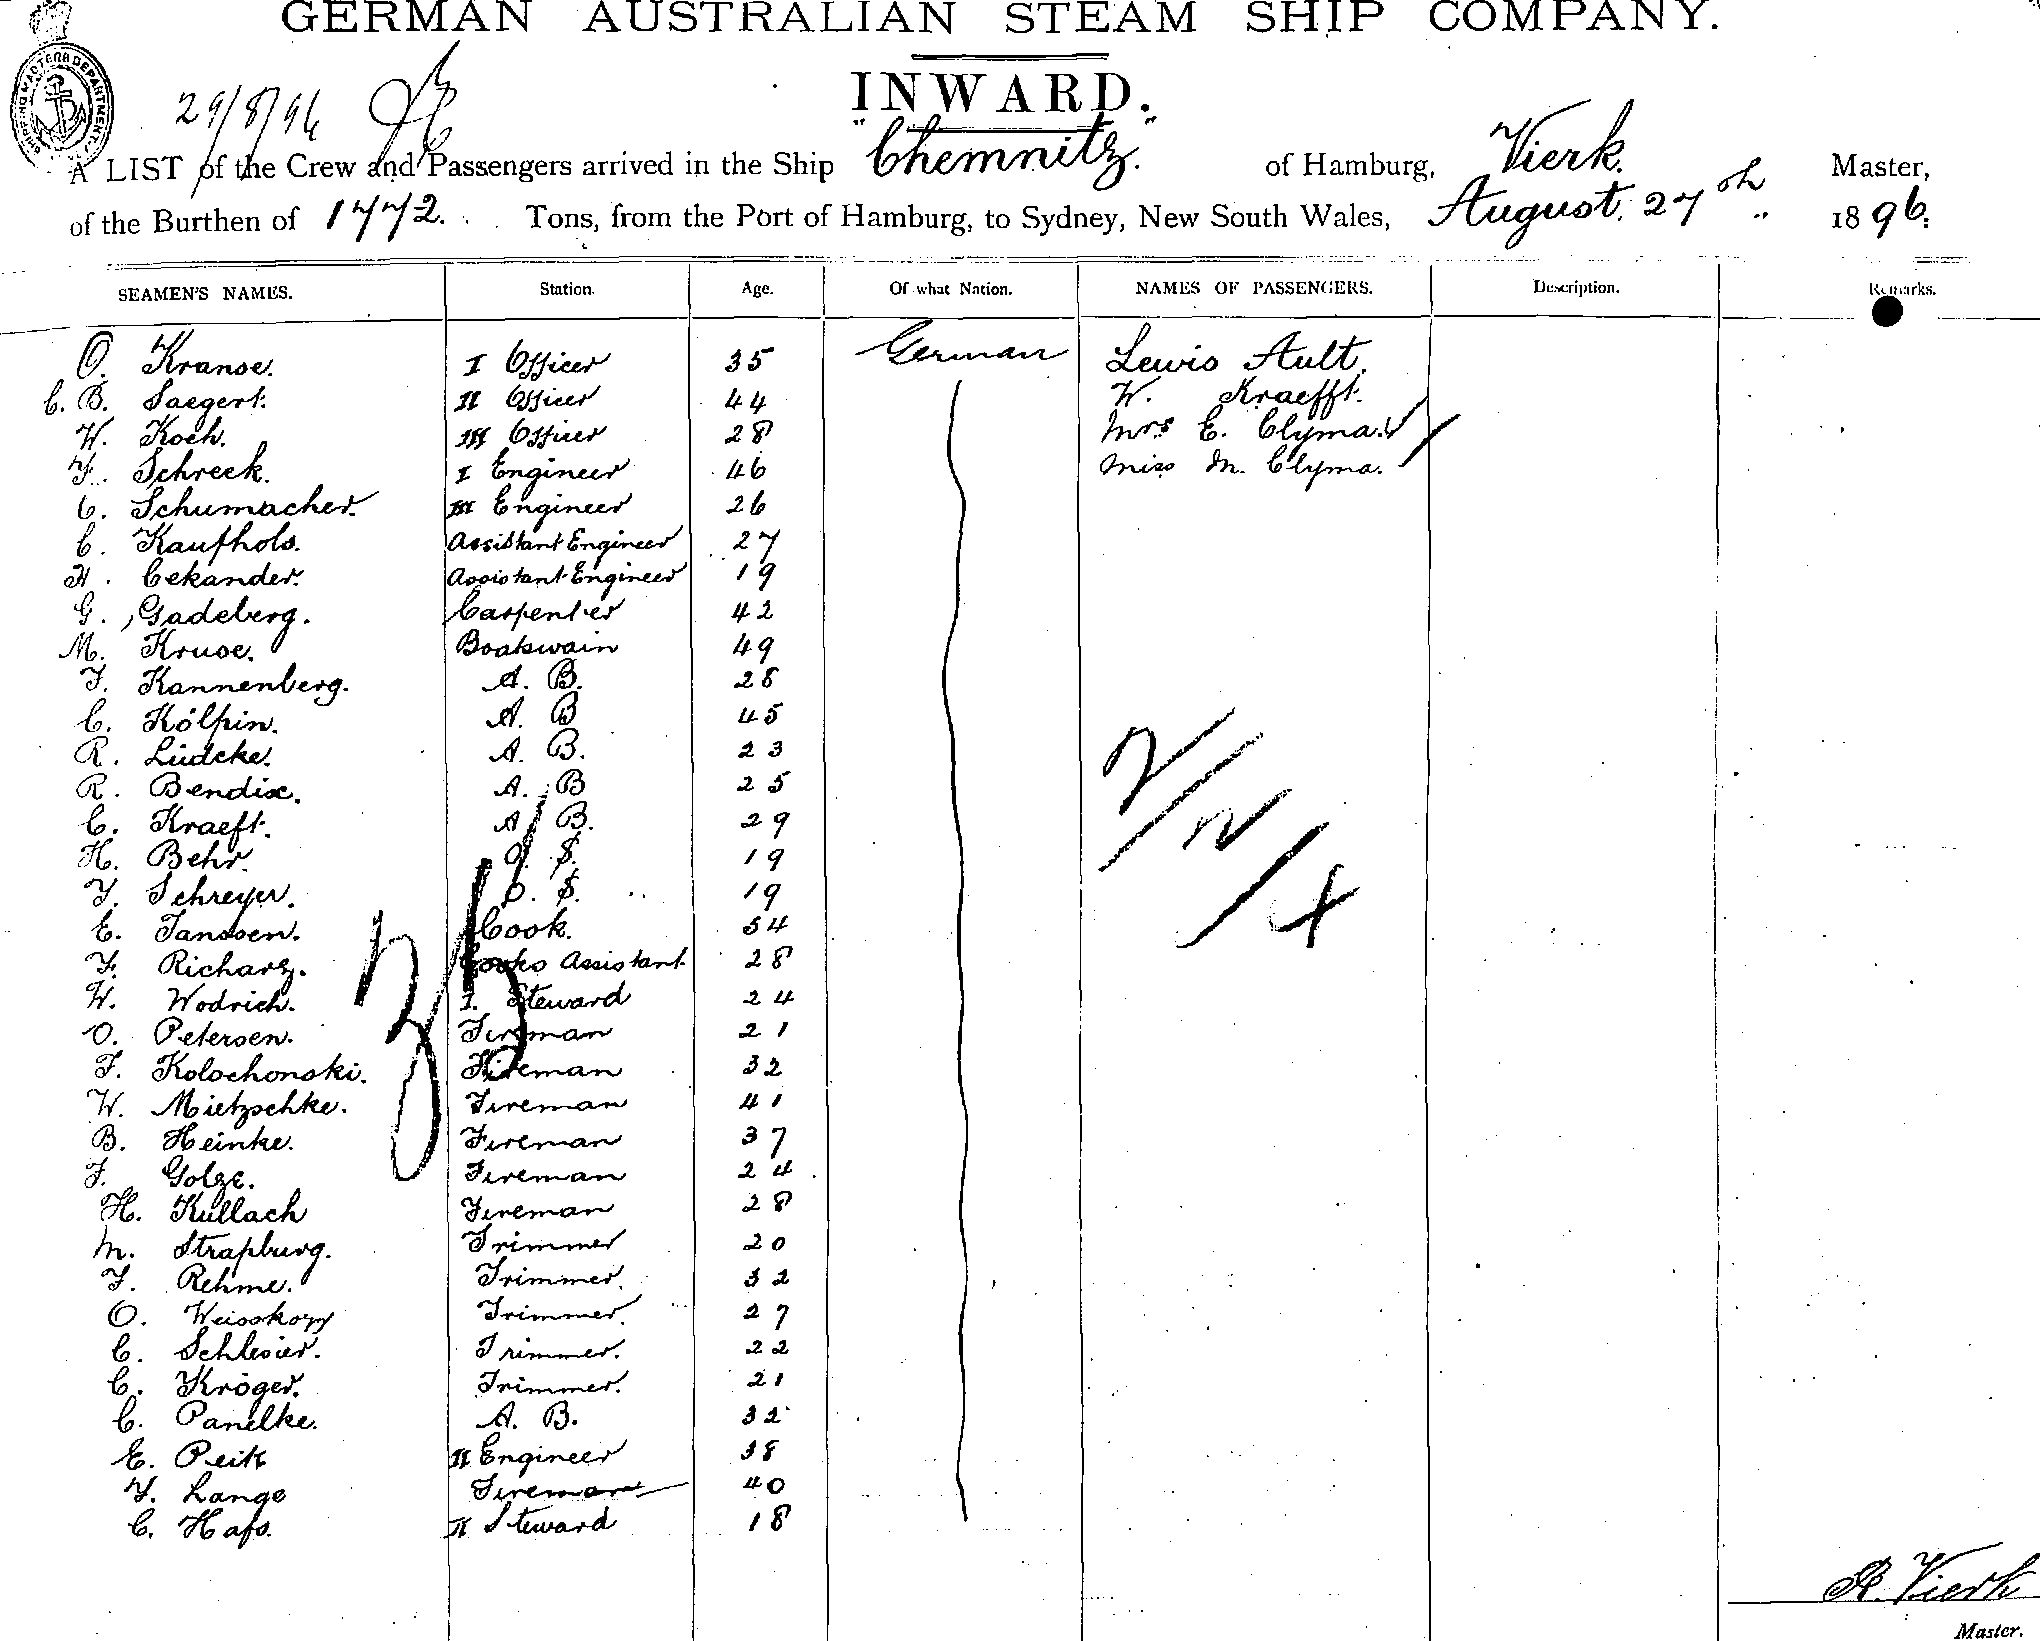 GERMAN AUSTRALIAN STEAM SHIP COMPANY.
INWARD.
29/8/96
A LIST of the Crew and Passengers arrived in the Ship "Chemnitz." of Hamburg, Vierk. Master,
of the Burthen of 1772. Tons, from the Port of Hamburg, to Sydney, New South Wales, August. 27th 1896.
SEAMEN'S NAMES. Station. Age. Of what Nation. NAMES OF PASSENGERS. Description. Remarks.
O. Kranse. I Officer 35 German Lewis Ault.
C. B. Saegert. II Officer 44 W. Kraefft.
W. Koch. III Officer 28 Mrs E. Clyma.
F. Schreck. I Engineer 46 Miss M. Clyma.
C. Schumacher. III Engineer 26
C. Kaufhols. Assistant Engineer 27
H. Cekander. Assistant Engineer 19
G. Gadeberg. Carpenter 42
M. Kruse. Boatswain 49
F. Kannenberg. A. B. 28
C. Kölpin. A. B 45
R. Lüdcke. A. B. 23
R. Bendix. A. B 25
C. Kraeft. A B. 29
H. Behr. O. S. 19
F. Schreyer. O. S. 19
E. Janssen. Cook. 54
F. Richarz. Cooks Assistant 28
W. Wodrich. I. Steward 24
O. Petersen. Fireman 21
F. Kolochonski. Fireman 32
W. Mietzschke. Fireman 41
B. Heinke. Fireman 37
F. Golze. Fireman 24
H. Kullach Fireman 28
M. Straßburg. Trimmer 20
F. Rehme. Trimmer. 32
O. Weisskopf Trimmer. 27
C. Schlesier. Trimmer. 22
C. Kröger. Trimmer. 21
C. Panelke. A. B. 32
E. Peik II Engineer 38
F. Lange Fireman 40
C. Haß. II Steward 18
R. Vierk
Master.